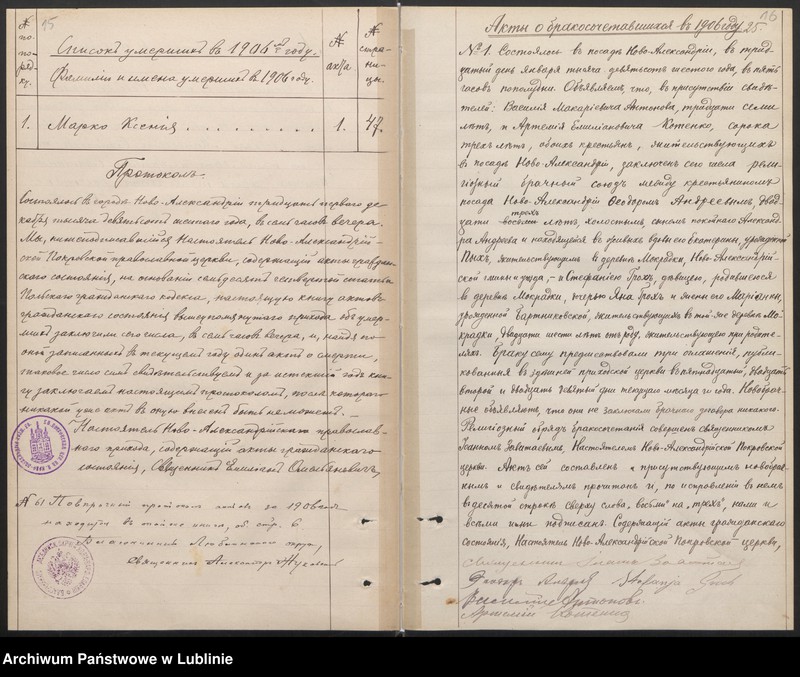 15
№ по поряд-ку.
Списокъ умершихъ въ 1906мъ году.
Фамилія и имена умершихъ въ 1906 году.
№ акта
№ стра-ни-цы.
1. Марко Ксенія 1. 47.
Протоколъ.
Состоялось въ городѣ Ново-Александріи тридцать перваго де-
кабря тысяча девятьсотъ шестого года, въ семь часовъ вечера.
Мы, нижеподписавшійся Настоятель Ново-Александрій-
ской Покровской православной церкви, содержащій акты граждан-
скаго состоянія, на основаніи семьдесятъ четвертой статьи
Польскаго гражданскаго кодекса, настоящую книгу актовъ
гражданскаго состоянія вышеупомянутаго прихода объ умер-
шихъ заключили сего числа, въ семь часовъ вечера, и, найдя по
оной записаннымъ въ текущемъ году одинъ актъ о смерти,
таковое число симъ свидѣтельствуемъ и за истекшій годъ кни-
гу заключаемъ настоящимъ протоколомъ, послѣ котораго
никакой уже актъ въ оную внесенъ быть не можетъ. –
Настоятель Ново-Александрійскаго православ-
наго прихода, содержащій акты гражданскаго
состоянія, Священникъ Емиліанъ
№ 61 за 1906 годъ
находится въ книгѣ, об. стр. 6
Священникъ Александръ
16
Акты о бракосочетавшихся въ 1906 году. 25.
№ 1. Состоялось въ посадѣ Ново-Александріи, въ трид-
цатый день Января тысяча девятьсотъ шестого года, въ пять
часовъ пополудни. Объявляемъ, что, въ присутствіи свидѣ-
телей: Василія Макаріевича Антонова, тридцати семи
лѣтъ, и Артемія Емиліановича Котенко, сорока
трехъ лѣтъ, обоихъ крестьянъ, жительствующихъ
въ посадѣ Ново-Александріи, заключенъ сего числа рели-
гіозный брачный союзъ между крестьяниномъ
посада Ново-Александріи Ѳеодоромъ Андреевымъ, двад-
трехъ
цати восьми лѣтъ, холостымъ, сыномъ покойнаго Александ-
ра Андреева и находящейся въ живыхъ вдовы его Екатерины, урожденной
Пыхъ, жительствующимъ въ деревнѣ Мокрадки, Ново-Александрій-
ской гмины и уѣзда, – и Стефаніею Грохъ, дѣвицею, родившеюся
въ деревнѣ Мокрадки, дочерью Яна Грохъ и жены его Маріанны,
урожденной Бартниковской, жительствующихъ въ той же деревнѣ Мо-
крадки двадцати шести лѣтъ отъ роду, жительствующею при родите-
ляхъ. Браку сему предшествовали три оглашенія, публи-
кованныя въ здѣшней приходской церкви въ пятнадцатый, двадцать
второй и двадцать девятый дни текущаго мѣсяца и года. Новобрач-
ные объявляютъ, что они не заключали брачнаго договора никакого.
Религіозный обрядъ бракосочетанія совершенъ священникомъ
Іоанномъ Настоятелемъ Ново-Александрійской Покровской
церкви. Актъ сей составленъ и присутствующимъ новобрач-
нымъ и свидѣтелямъ прочитанъ и, по исправленіи въ немъ
въ десятой строкѣ сверху слова „восьми“ на „трехъ“, нами и
всѣми ими подписанъ. Содержащій акты гражданскаго
состоянія, Настоятель Ново-Александрійской Покровской церкви,
Священникъ Іоаннъ
Ѳеодоръ Андреев Stefanja Groch
Василіе Антоновъ.
Артемій Котенко
Archiwum Państwowe w Lublinie